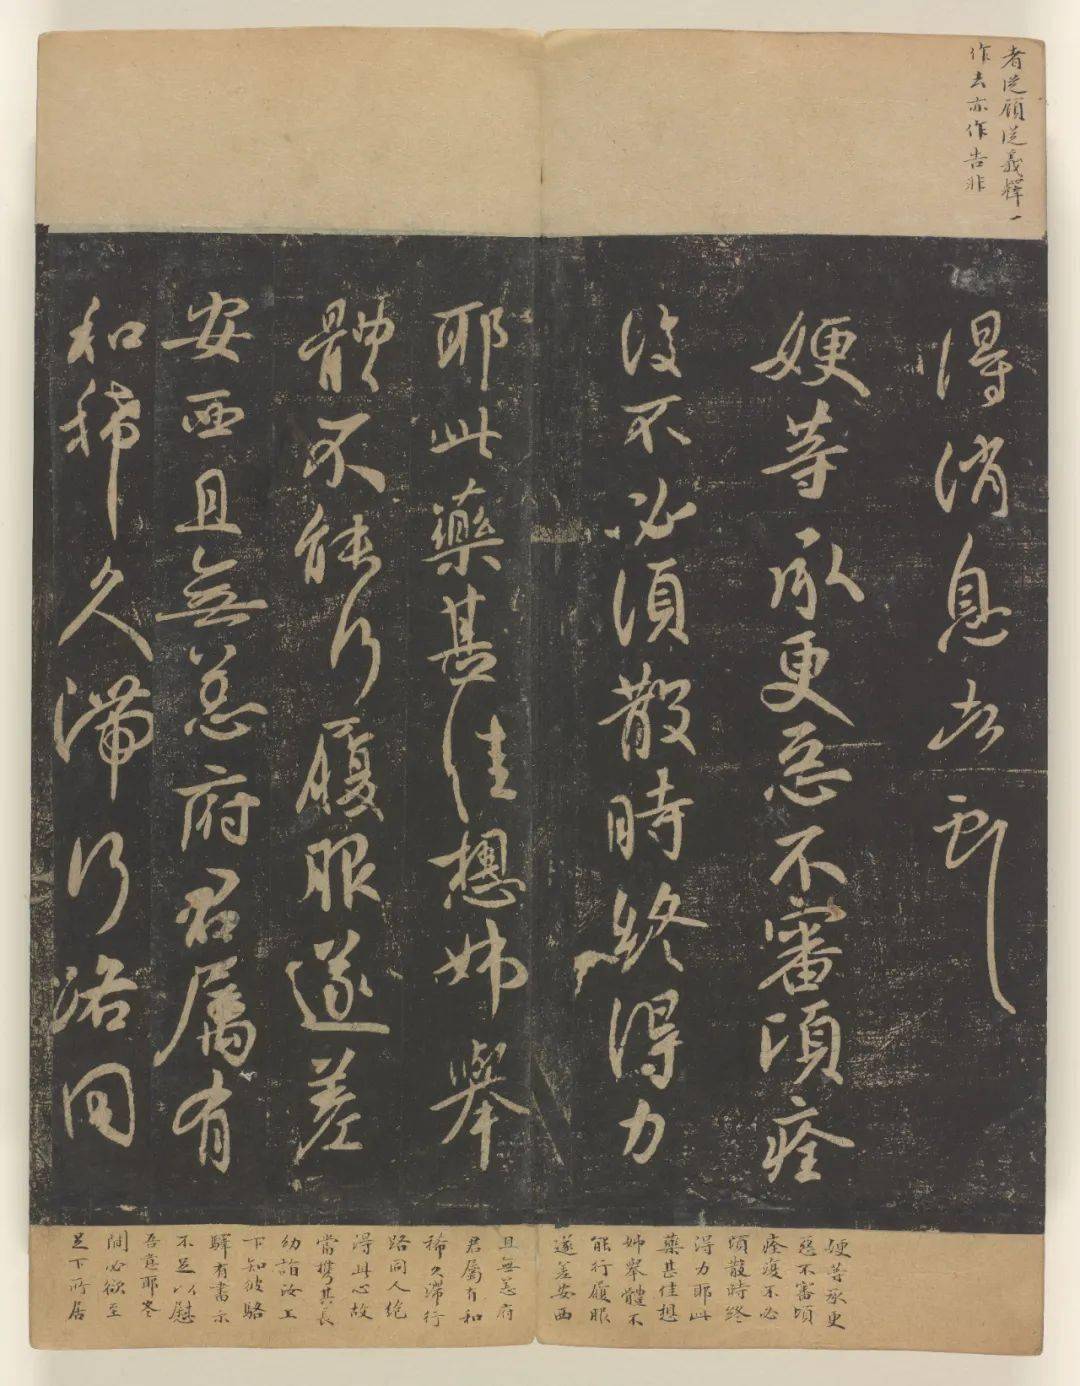 者從顧從義釋一
作去亦作告非
得消息去耶
㛹等承更惡不審頃痊
復不必須散時終得力
耶此藥甚佳想姊舉
體不能行履眼遂差
安西且無恙府君屬有
和稀久滯行洛同
㛹等承更
惡不審頃
痊復不必
頃散時終
得力耶此
藥甚佳想
姊舉體不
能行履眼
遂差安西
且無恙府
君屬有和
稀久滯行
路同人絶
得此心故
當攜其長
幼詣汝上
下知彼駱
驛有書示
不足以慰
吾意耶岑
間必欲至
足下所居